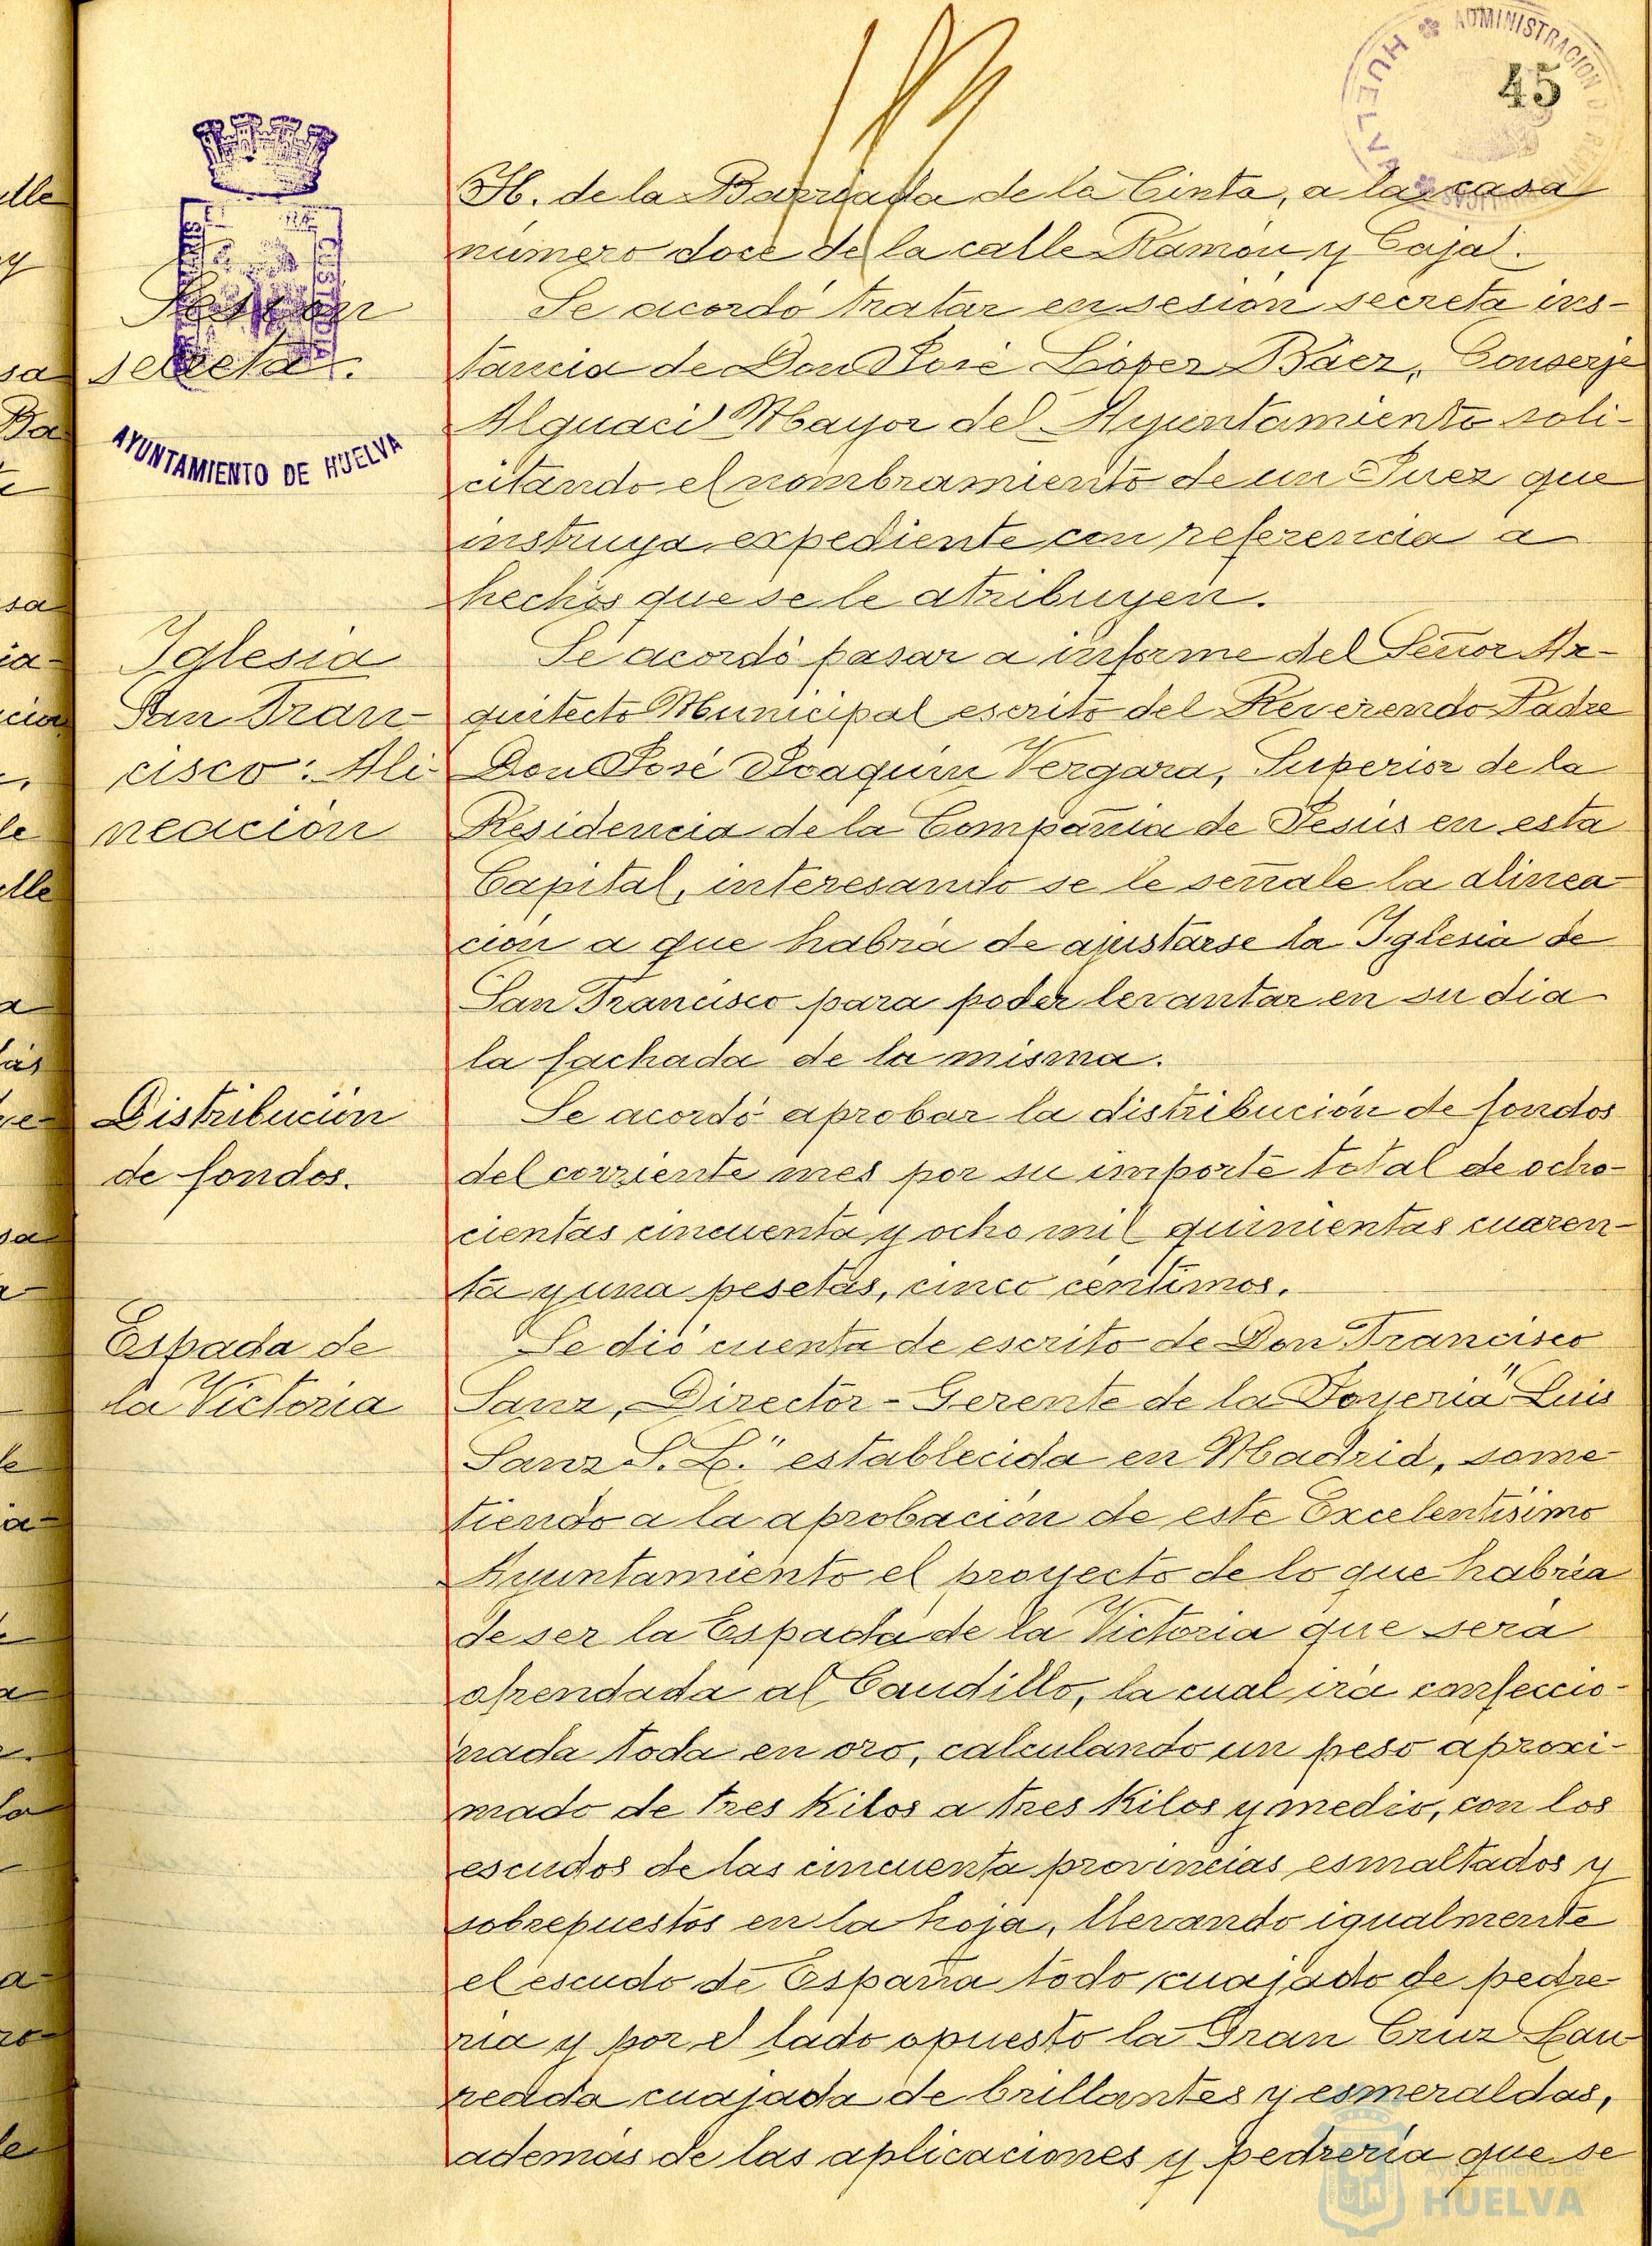 45
ADMINISTRACION
HUELVA
H. de la Barriada de la Cinta, a la casa
número doce de la calle Ramón y Cajal.
Sesión
secreta.
AYUNTAMIENTO DE HUELVA
Se acordó tratar en sesión secreta ins-
tancia de Don José López Báez, Conserje
Alguacil Mayor del Ayuntamiento soli-
citando el nombramiento de un Juez que
instruya expediente con referencia a
hechos que se le atribuyen.
Iglesia
San Fran-
cisco: Ali-
neación
Se acordó pasar a informe del Señor Ar-
quitecto Municipal escrito del Reverendo Padre
Don José Joaquín Vergara, Superior de la
Residencia de la Compañia de Jesús en esta
Capital, interesando se le señale la alinea-
ción a que habría de ajustarse la Iglesia de
San Francisco para poder levantar en su dia
la fachada de la misma.
Distribución
de fondos.
Se acordó aprobar la distribución de fondos
del corriente mes por su importe total de ocho-
cientas cincuenta y ocho mil quinientas cuaren-
ta y una pesetas, cinco centimos.
Espada de
la Victoria
Se dió cuenta de escrito de Don Francisco
Sanz, Director-Gerente de la Joyeria "Luis
Sanz S. L." establecida en Madrid, some-
tiendo a la aprobación de este Excelentísimo
Ayuntamiento el proyecto de lo que habría
de ser la Espada de la Victoria que será
ofrendada al Caudillo, la cual irá confeccio-
nada toda en oro, calculando un peso aproxi-
mado de tres Kilos a tres Kilos y medio, con los
escudos de las cincuenta provincias esmaltados y
sobrepuestos en la hoja, llevando igualmente
el escudo de España todo cuajado de pedre-
ria y por el lado opuesto la Gran Cruz Lau-
reada cuajada de brillantes y esmeraldas,
además de las aplicaciones y pedrería que se
Ayuntamiento de
HUELVA